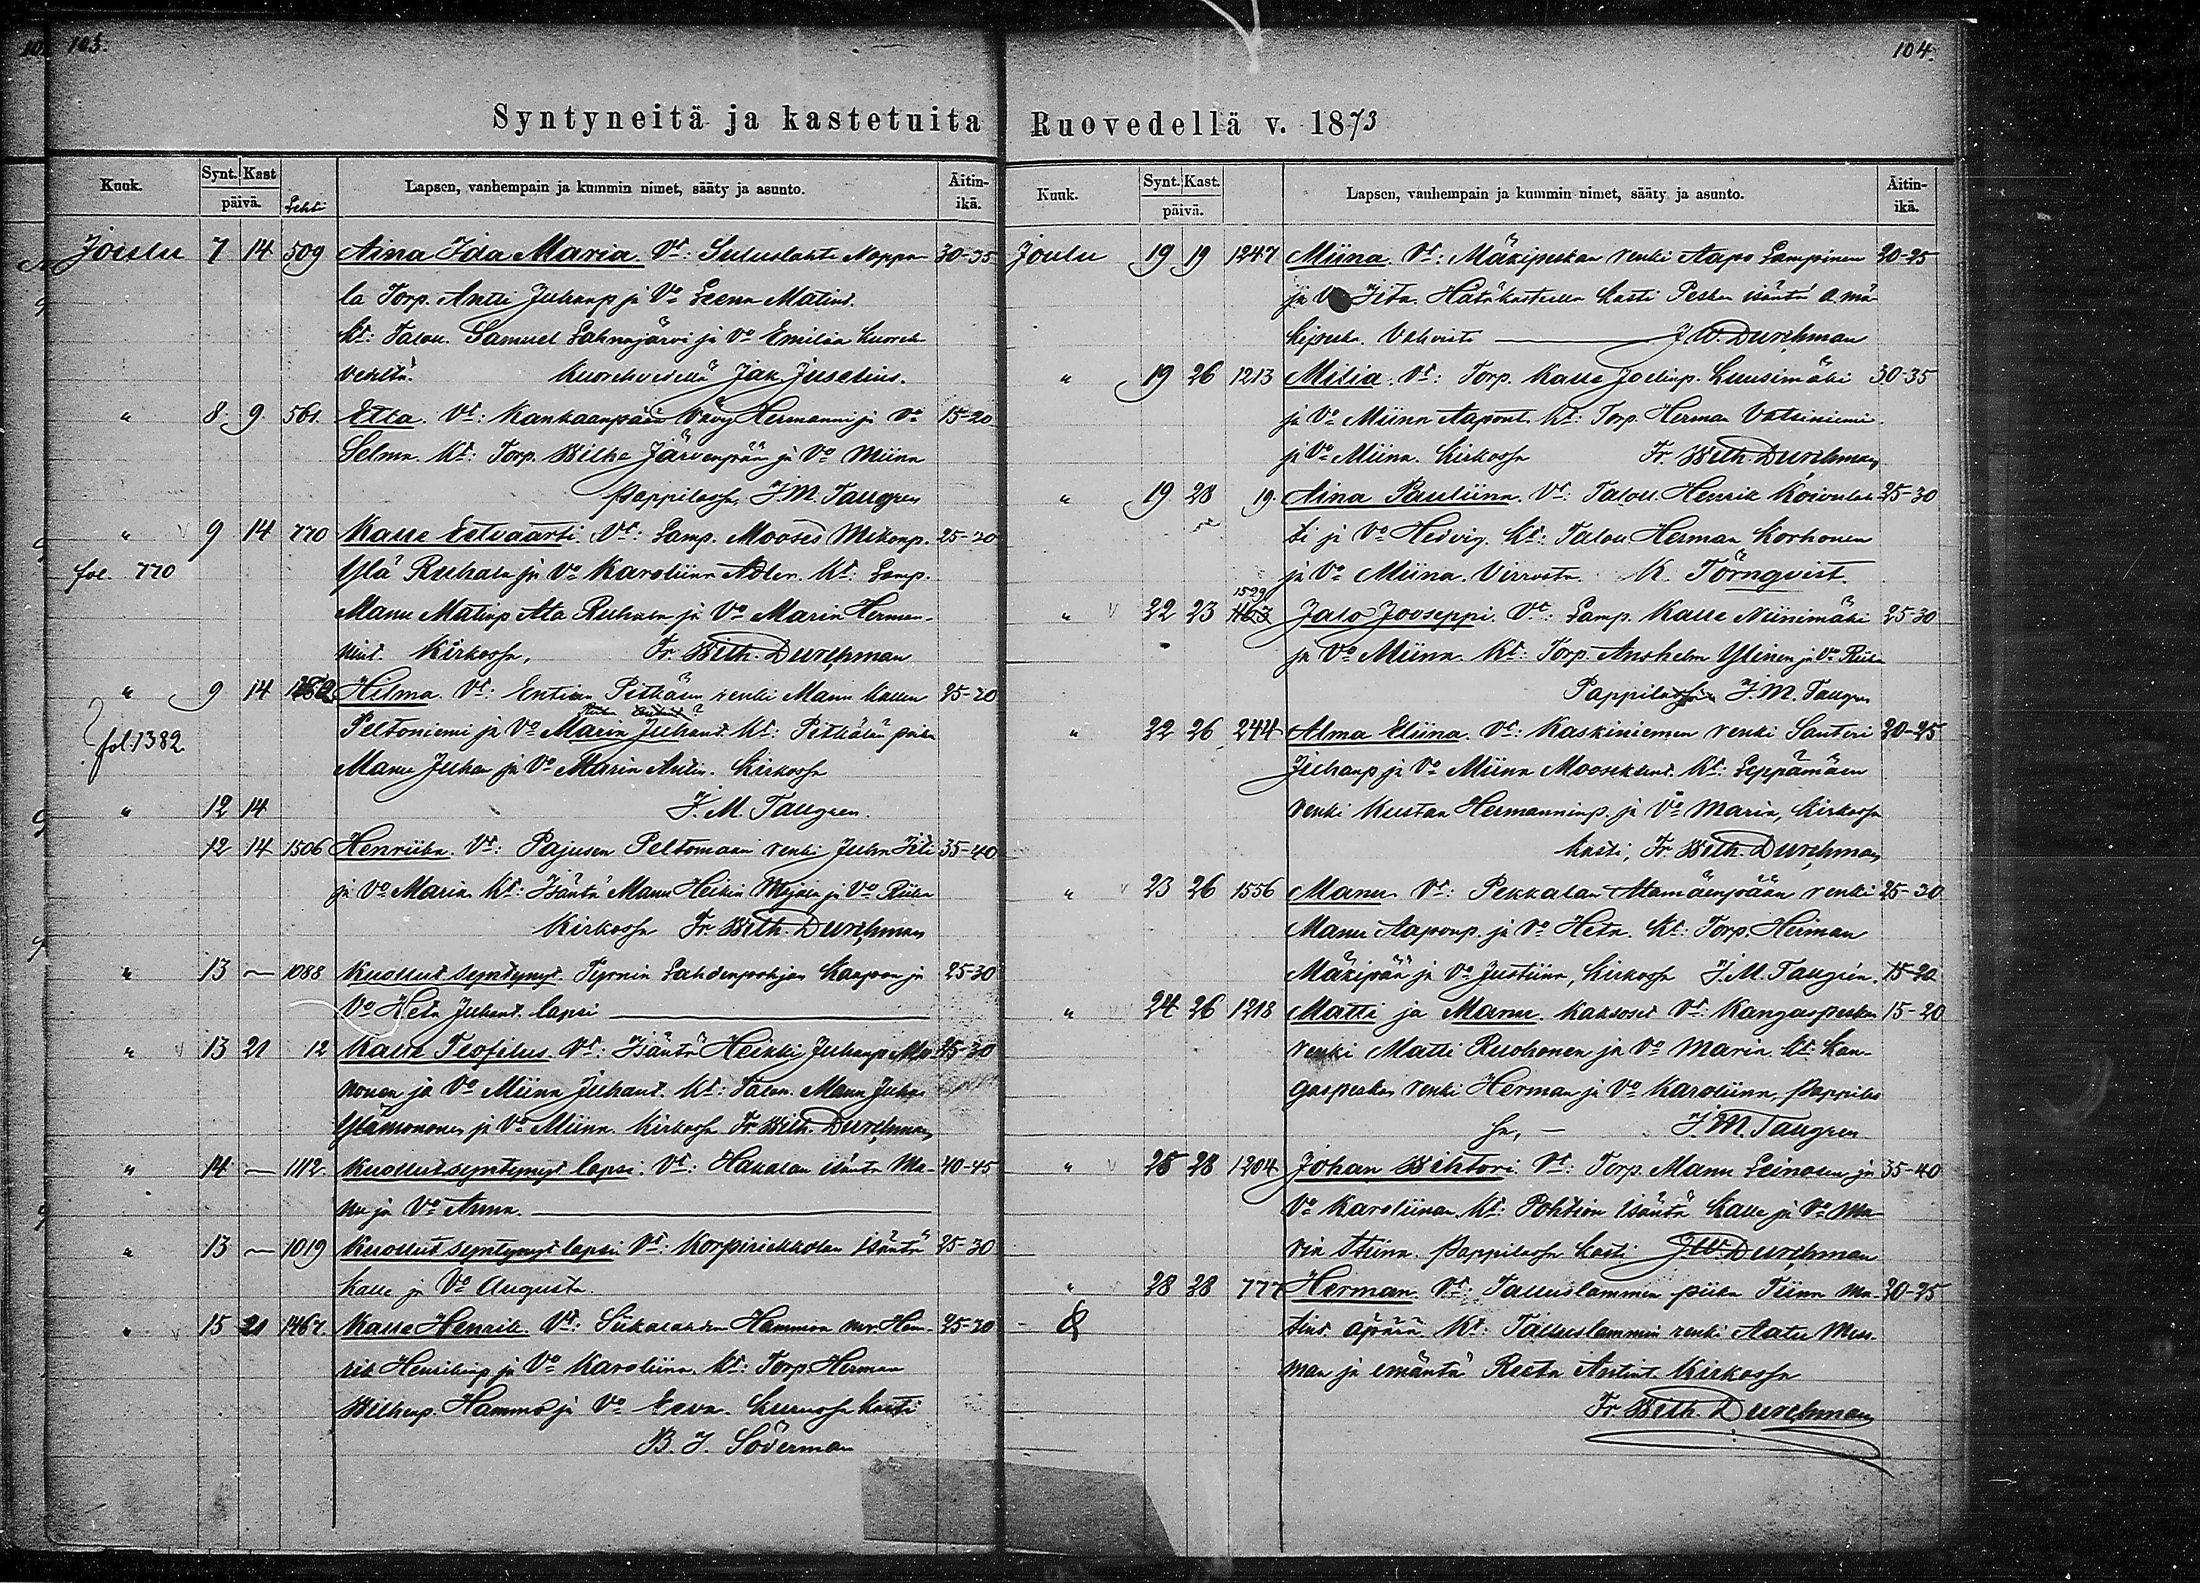 103.
Syntyneitä ja kastetuita
Kuuk. Synt. Kast päivä. Lehti Lapsen, vanhempain ja kummin nimet, sääty ja asunto. Äitin-ikä.
Joulu 7 14 509 Aina Ida Maria. Vt: Suluslahti Noppa- 30-35
la Torp. Antti Juhanp ja Vo Leena Matint.
Kt: Talou. Samuel Lahnajärvi ja Vo Emilia Kuoreh-
vedeltä. Kuorehvedellä Jak. Juselius.
" 8 9 561. Etla. Vt: Kankaanpään Vävy Hermanni ja Vo 15-20
Selma. Kt: Torp. Wilhe Järvenpää ja Vo Miina
Pappilassa, J. M. Taugren
" 9 14 770 Kalle Eetvaarti. Vt: Lamp. Mooses Mikonp. 25-30
fol. 770 Ylä Ruhala ja Vo Karoliina Adler. Kt: Lamp.
Manu Matinp Ala Ruhala ja Vo Maria Herman-
nint. Kirkossa, Fr. Wilh. Durchman
" 9 14 1382 Hilma. Vt: Entinen Pitkään renki Manu Kallen 25-30
fol. 1382 Peltoniemi ja Vo Maria Juhant. Kt: Pitkälän
Manu Juha ja Vo Maria Antin. Kirkossa
" 12 14 J. M. Taugren.
12 14 1506 Henriika. Vt: Pajusen Peltomaan renki Juha 35-40
ja Vo Maria. Kt: Isäntä Manu Heikin Majala ja Vo Riika
Kirkossa Fr. Wilh. Durchman
" 13 — 1088 Kuollut syntynyt. Tyrnin Lahdenpohjan Kaapon ja 25-30
Vo Heta Juhant. lapsi
" 13 21 12 Kalle Teofilus. Vt: Isäntä Heikki Juhanp Mo- 25-30
nonen ja Vo Miina Juhant. Kt: Talou. Manu Juha
Ylämononen ja Vo Miina. Kirkossa Fr. Wilh. Durchman
" 14 — 1112. Kuollut syntynyt lapsi. Vt: Hakalan isäntä Ma- 40-45
nu ja Vo Anna.
" 13 — 1019 Kuollut syntynyt lapsi Vt: Korpiriekkolan Isäntä 25-30
Kalle ja Vo Augusta.
" 15 21 1467. Kalle Henrik. Vt: Siikalahden Hammon Hen- 25-30
rik Henrikinp ja Vo Karoliina. Kt: Torp. Herman
Wilhenp. Hammo ja Vo Eeva. Kurussa Kasti
B. J. Söderman
104.
Ruovedellä v. 1873
Kuuk. Synt. Kast. päivä. Lapsen, vanhempain ja kummin nimet, sääty ja asunto. Äitin-ikä.
Joulu 19 19 1247 Miina. Vt: Mäkipeskan renki Aapo Lampinen 20-25
ja Vo Iita. Hätäkasteella kasti Peskan isäntä A. Mä-
kipeska. Vahvisti J. W. Durchman
" 19 26 1213 Milia. Vt: Torp. Kalle Joelinp. Kuusimäki 30-35
ja Vo Miina Aapont. Kt: Torp. Herman Vatsiniemi
ja Vo Miina. Kirkossa Fr. Wilh. Durchman
" 19 28 19. Aina Pauliina. Vt: Talou. Henrik Koivulah- 25-30
ti ja Vo Hedvig. Kt: Talou Herman Korhonen
ja Vo Miina. Virroilta. K. Törnqvist.
1529
" 22 23 1163 Jalo Jooseppi. Vt: Lamp. Kalle Niinimäki 25-30
ja Vo Miina. Kt: Torp. Anshelm Ylinen ja Vo Riika
Pappilassa J. M. Taugren
" 22 26 244 Alma Eliina. Vt: Kaskiniemen renki Santeri 20-25
Juhanp ja Vo Miina Mooseksent. Kt: Leppämäen
renki Kustaa Hermanninp. ja Vo Maria, Kirkossa
kasti, Fr. Wilh. Durchman
" 23 26 1556 Manu. Vt: Pekkalan Alamäenpään renki 25-30
Manu Aaponp. ja Vo Heta. Kt: Torp. Herman
Mäkipää ja Vo Justiina, Kirkossa J. M. Taugrén. 15-20
" 24 26 1218 Matti ja Manu. Kaksoset Vt: Kangaspeskan 15-20
renki Matti Ruohonen ja Vo Maria. Kt: Kan-
gaspeskan renki Herman ja Vo Karoliina, Pappilas-
sa, — J. M. Taugren
" 25 28 1204 Johan Wihtori. Vt: Torp. Manu Leinosen ja 35-40
Vo Karoliinan. Kt: Pohtion Isäntä Kalle ja Vo Ma-
ria Stiina. Pappilassa kasti J. W. Durchman
" 28 28 777 Herman. Vt: Talluslammin piika Tiina Ma- 20-25
tint. äpärä. Kt: Talluslammin renki Aatu
man ja emäntä Reeta Antint. Kirkossa
Fr. Wilh. Durchman